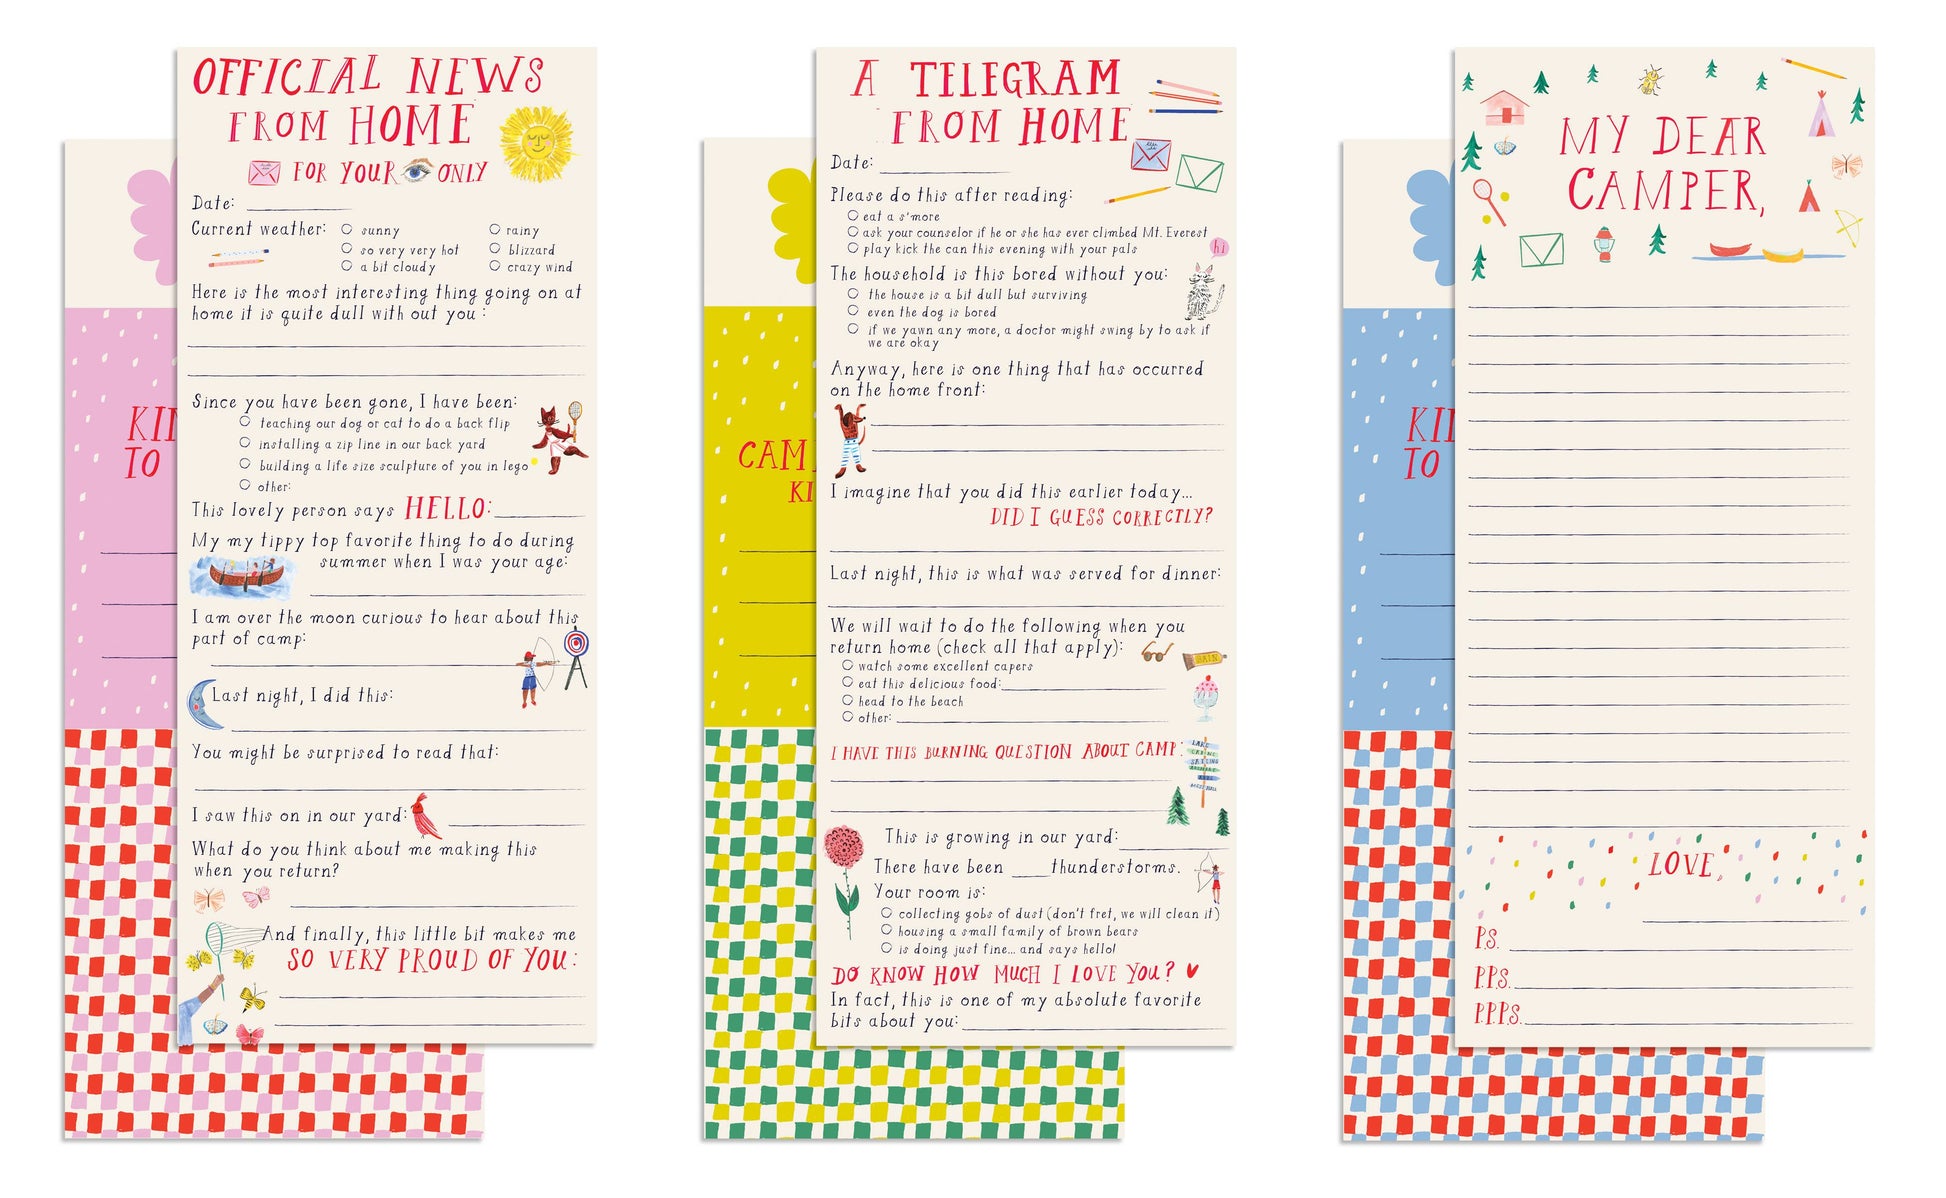 OFFICIAL NEWS
FROM HOME
FOR YOUR ONLY
Date:
Current weather:
sunny
so very very hot
a bit cloudy
rainy
blizzard
crazy wind
Here is the most interesting thing going on at
home it is quite dull with out you:
Since you have been gone, I have been:
teaching our dog or cat to do a back flip
installing a zip line in our back yard
building a life size sculpture of you in lego
other:
This lovely person says HELLO:
My my tippy top favorite thing to do during
summer when I was your age:
I am over the moon curious to hear about this
part of camp:
Last night, I did this:
You might be surprised to read that:
I saw this on in our yard:
What do you think about me making this
when you return?
And finally, this little bit makes me
SO VERY PROUD OF YOU:
TO
A TELEGRAM
FROM HOME
Date:
Please do this after reading:
eat a s'more
ask your counselor if he or she has ever climbed Mt. Everest
play kick the can this evening with your pals
hi
The household is this bored without you:
the house is a bit dull but surviving
even the dog is bored
if we yawn any more, a doctor might swing by to ask if
we are okay
Anyway, here is one thing that has occurred
on the home front:
I imagine that you did this earlier today...
DID I GUESS CORRECTLY?
Last night, this is what was served for dinner:
We will wait to do the following when you
return home (check all that apply):
watch some excellent capers
eat this delicious food:
head to the beach
other:
I HAVE THIS BURNING QUESTION ABOUT CAMP:
LAKE
This is growing in our yard:
There have been thunderstorms.
Your room is:
collecting gobs of dust (don't fret, we will clean it)
housing a small family of brown bears
is doing just fine... and says hello!
DO KNOW HOW MUCH I LOVE YOU?
In fact, this is one of my absolute favorite
bits about you:
CAM
KI
MY DEAR
CAMPER,
LOVE,
P.S.
P.P.S.
P.P.P.S.
TO